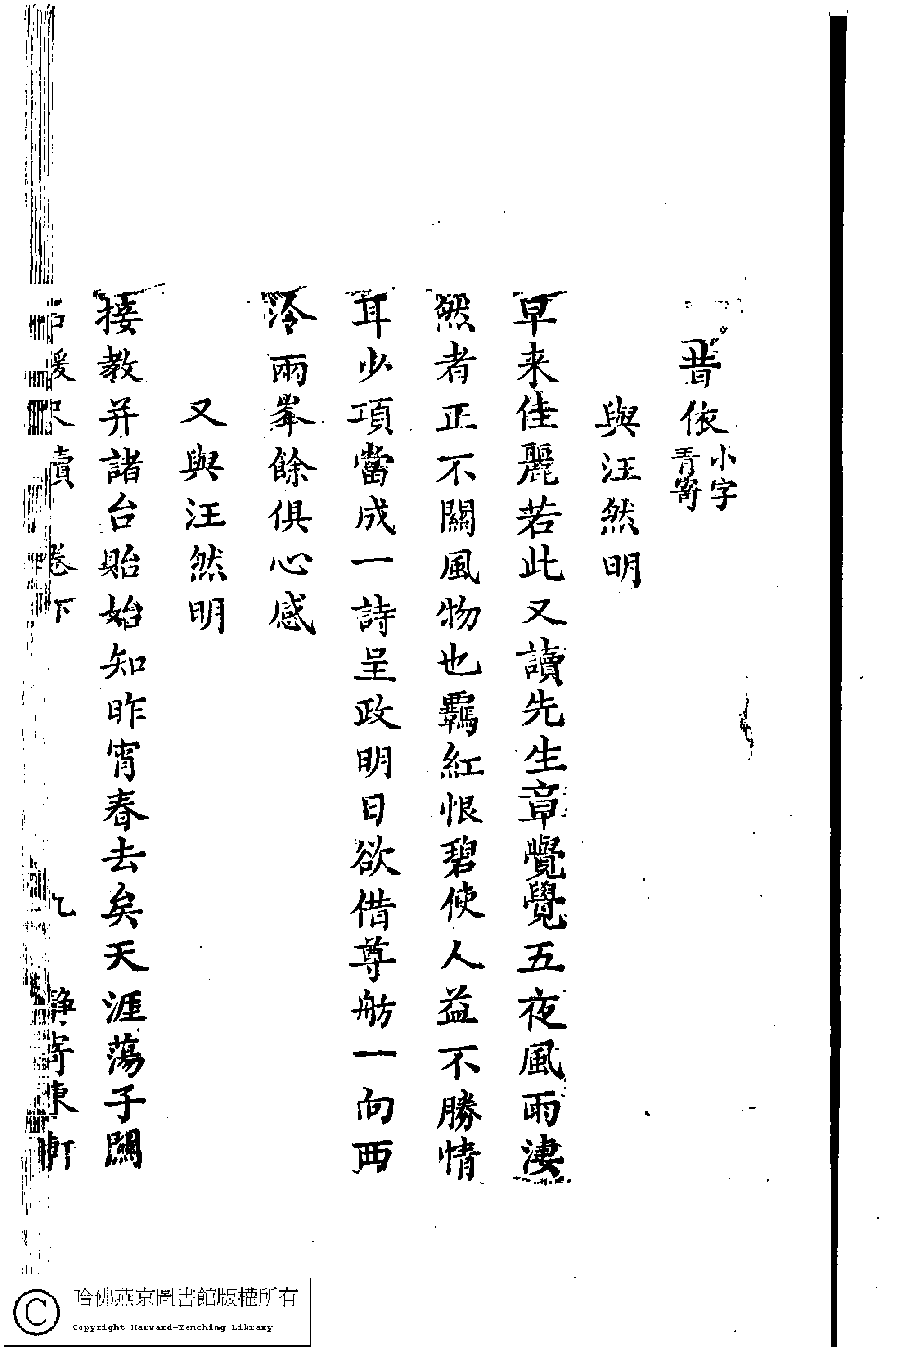 普依 小字青㝯
與汪然明
早来佳麗若此又讀先生章覺覺五夜風雨淒
然者正不關風物也羈紅恨碧使人益不勝情
耳少項當成一詩呈政明日欲借尊舫一向西
泠雨峯餘俱心感
又與汪然明
接教并諸台貽始知昨宵春去矣天涯蕩子關
古媛尺牘 卷下 九 靜寄東軒
哈佛燕京圖書館版權所有
Copyright Harvard-Yenching Library